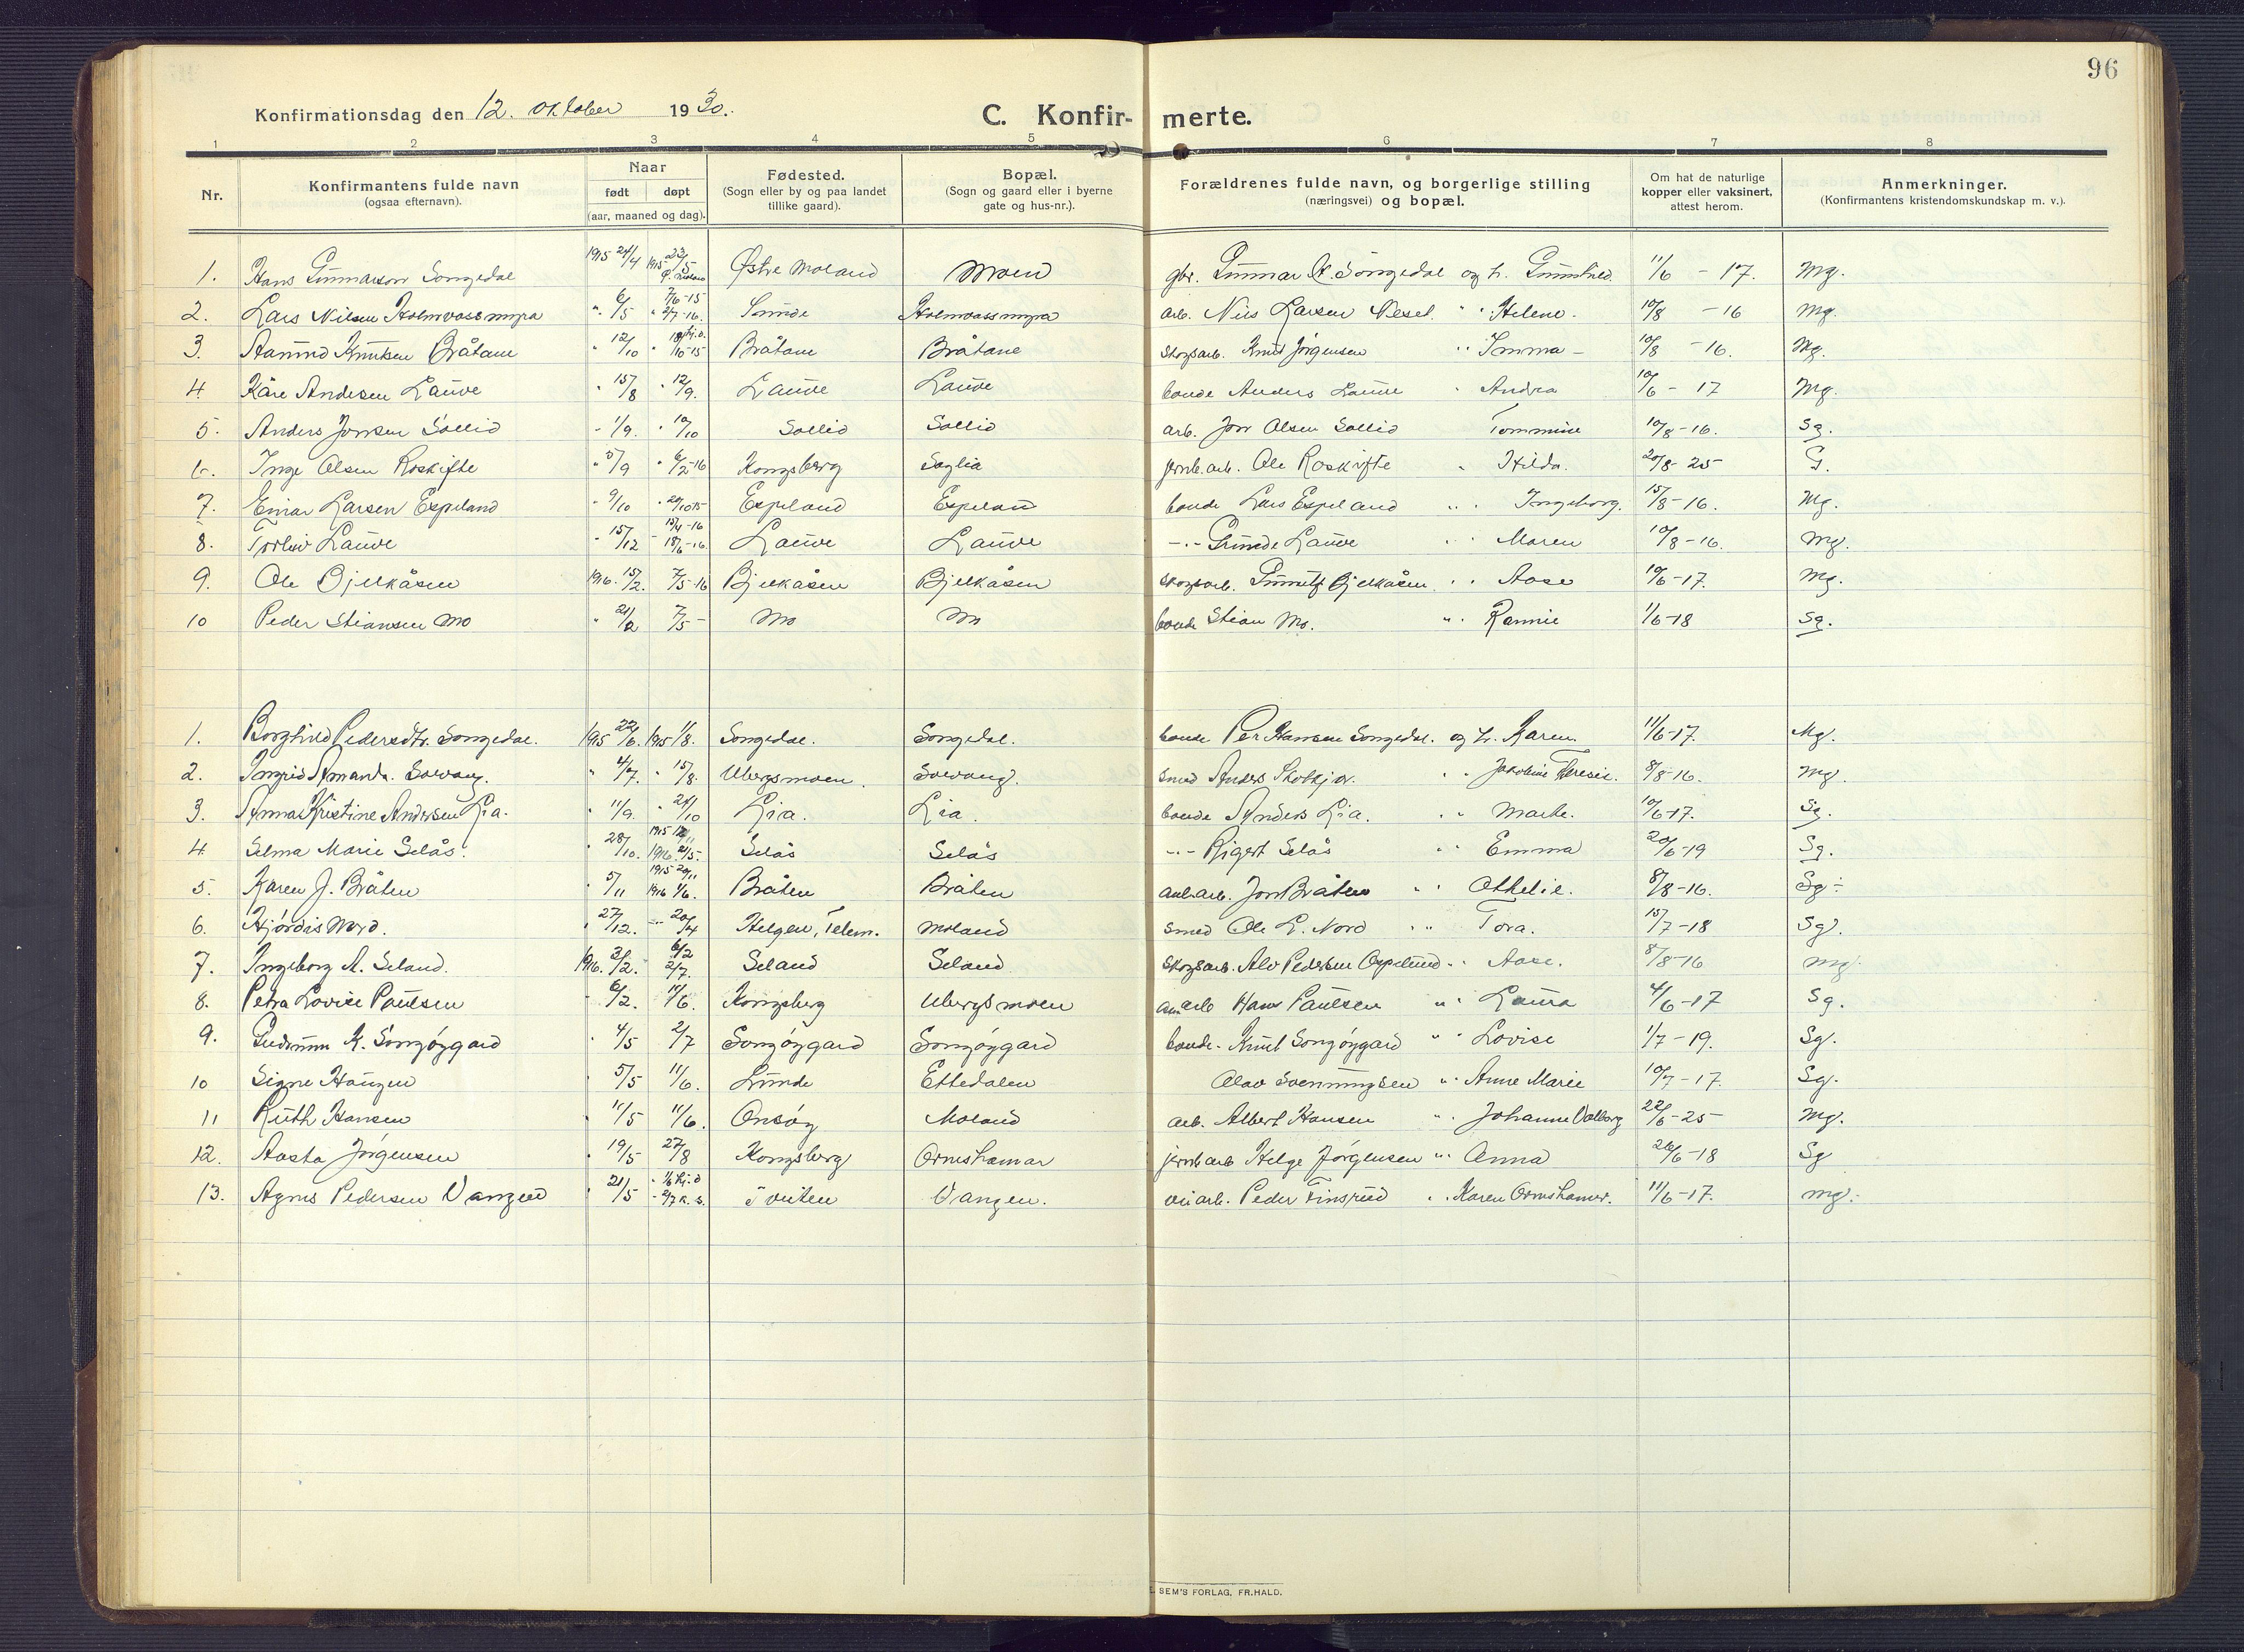 96
Konfirmationsdag den 12. oktober 1930.
C. Konfir- merte.
1 2 3 4 5 6 7 8
Nr. Konfirmantens fulde navn (ogsaa efternavn). Naar født døpt (aar, maaned og dag). Fødested. (Sogn eller by og paa landet tillike gaard). Bopæl. (Sogn og gaard eller i byerne gate og hus-nr.). Forældrenes fulde navn, og borgerlige stilling (næringsvei) og bopæl. Om hat de naturlige kopper eller vaksinert, attest herom. Anmerkninger. (Konfirmantens kristendomskundskap m. v.).
1. Hans Gunnarson Songedal 1915 24/4 1915 23/5 Ø. Moland Østre Moland Moen gbr. Gunnar Songedal og h. Gunhild. 11/6 - 17. Mg.
2. Lars Nilsen Holmvassmyra " 6/5 7/6-15 " 2/7-16. Sunde Holmvassmyra arb. Nils Larsen Neset. " " Helene. 10/8 - 16 Mg.
3. Aamund Knutsen Bråtane " 12/10 " 18/10-15 Bråtane Bråtane skogsarb. Knut Jørgensen " " Imma - 10/8 - 16. Mg.
4. Kåre Andersen Lauve " 15/8 " 12/9. Lauve Lauve bonde Anders Lauve " Andrea 10/6 - 17 Mg.
5. Anders Jonsen Sollid " 1/9. " 10/10 Sollid Sollid arb. Jon Olsen Sollid Tommine 10/8-16. Sg.
6. Inge Olsen Roskifte " 5/9 " 6/2-16 Kongsberg Saglia jernb.arb. Ole Roskifte " Hilda. 20/8-25 G.
7. Einar Larsen Espeland " 9/10 " 24/10 15 Espeland Espeland bonde Lars Espeland " " Ingeborg. 15/8-16. Mg.
8. Torleiv Lauve " 15/12 - 18/6-16. Lauve Lauve -"- Grunde Lauve " " Maren 10/8-16. Mg.
9. Ole Bjelkåsen 1916. 15/2. 7/5-16 Bjelkåsen Bjelkåsen skogsarb. Bjelkåsen. " " Aase 10/6-17. Mg.
10 Peder Stiansen Mo " 21/2 7/5 - Mo Mo bonde Stian Mo. " " Rannie 1/6-18 Sg.
1. Borghild Pedersdtr. Songedal. 1915 22/6. 1915 1/8. Songedal. Songedal. bonde Per Hansen Songedal. og h. Karen. 11/6-17. Mg.
2. Ingrid Amanda. Solvang. " 4/7. " 15/8. Ubergsmoen. Solvang. smed Anders " " Jakobine Theresie. 8/8-16. Mg.
3. Anna Kristine Andersen Lia. " 11/9. " 24/10 Lia. Lia. bonde Anders Lia. " " Marte. 10/6-17. Sg.
4. Selma Marie Selås. " 28/10. 1916. 21/5. Selås Selås -"- Birgert Selås " " Emma 20/6-19 Sg.
5. Karen J. Bråten " 5/11 1915 20/11 1916 1/6. Bråten Bråten anl.arb. Jon Bråten " " Othelie. 8/8-16. Sg.
6. Hjørdis Nord. " 27/12. -"- 20/4 Helgen, Telem. Moland smed Ole L. Nord " " Tora. 15/7-18 Sg.
7. Ingeborg A. Seland. 1916. 2/2. 2/7. Seland Seland skogsarb. Alv Pedersen Oppelund " " Aase. 8/8-16 Mg.
8. Petra Lovise Paulsen - 6/2. 11/6. Kongsberg Ubergsmoen arb Hans Paulsen " " Laura 4/6-17 Sg.
9. Gudrunn K. Songøygard " 4/5 2/7 Songøygard Songøygard bonde. Knut Songøygard " " Lovise 1/7-19. Sg.
10 Signe Haugen " 5/5 11/6. Lunde Ettedalen Olav Svenningsen " " Anne Marie 10/7-17. Sg.
11 Ruth Hansen " 11/5 11/6. Onsøy Moland arb. Albert Hansen " " Johanne Valborg 22/6-25 Mg.
12. Aasta Jørgensen " 19/5 27/8 Kongsberg Ormshamar jernb arb Helge Jørgensen " " Anna 26/6-18 Sg
13. Agnes Pedersen Vangen " 21/5 Tveiten Vangen. veiarb. Peder Finsrud " " Karen Ormshamar. 11/6-17. Mg.
SEM'S FORLAG, FR.HALD.